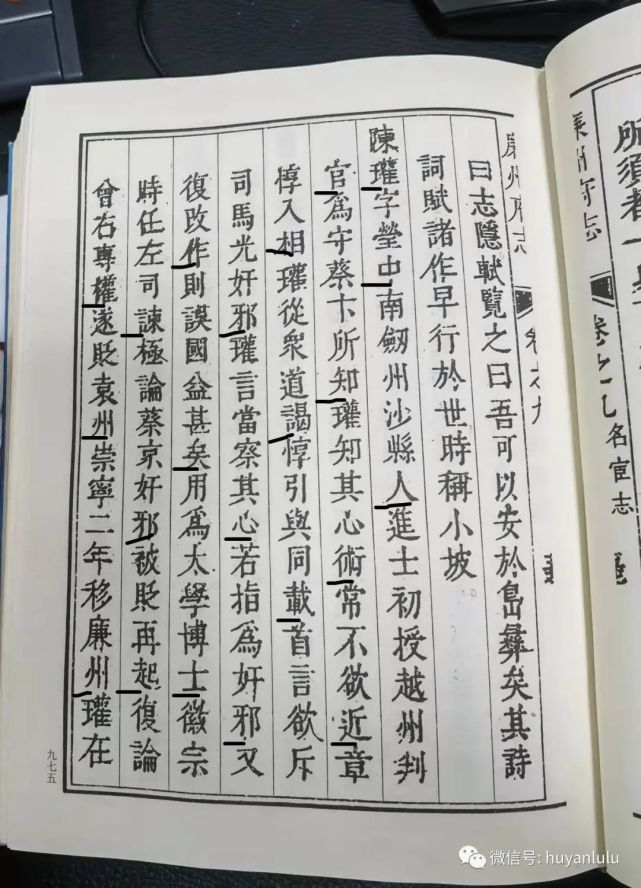 所須者一與
廉州府志
卷之九
名宦志
廉州府志
卷之九
曰志隱軾覽之曰吾可以安於島彝矣其詩
詞賦諸作早行於世時稱小坡
陳瓘字瑩中南劔州沙縣人進士初授越州判
官爲守蔡卞所知瓘知其心術常不欲近章
惇入相瓘從衆道謁惇引與同載首言欲斥
司馬光奸邪瓘言當察其心若指爲奸邪又
復改作則誤國益甚矣用爲太學博士徽宗
時任左司諫極論蔡京奸邪被貶再起復論
曾右專權遂貶袁州崇寧二年移廉州瓘在
九七五
微信号: huyanlulu